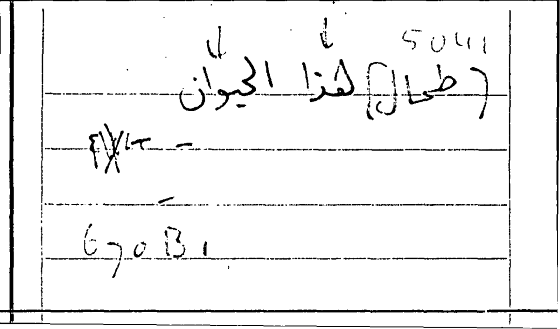 5041
(طحال) لهذا الحيوان
-
-
670B1